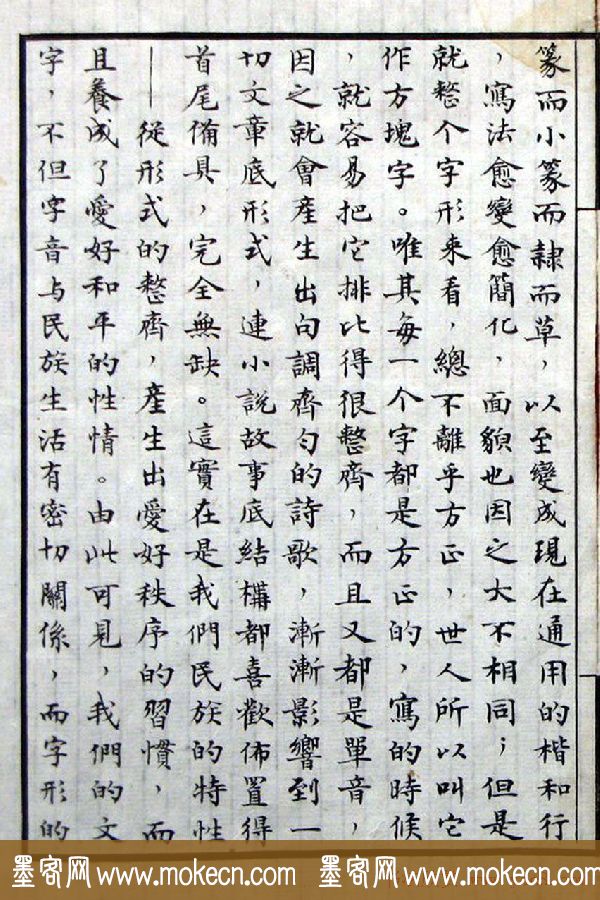 篆而小篆而隸而草，以至變成現在通用的楷和行
，寫法愈變愈簡化，面貌也因之大不相同；但是
就整个字形來看，總不離乎方正，世人所以叫它
作方塊字。唯其每一个字都是方正的，寫的時候
，就容易把它排比得很整齊，而且又都是單音，
因之就會產生出句調齊勻的詩歌，漸漸影響到一
切文章底形式，連小說故事底結構都喜歡佈置得
首尾備具，完全無缺。這實在是我們民族的特性
——從形式的整齊，產生出愛好秩序的習慣，而
且養成了愛好和平的性情。由此可見，我們的文
字，不但字音与民族生活有密切關係，而字形的
墨客网 www.mokecn.com 墨客网 www.mokecn.com